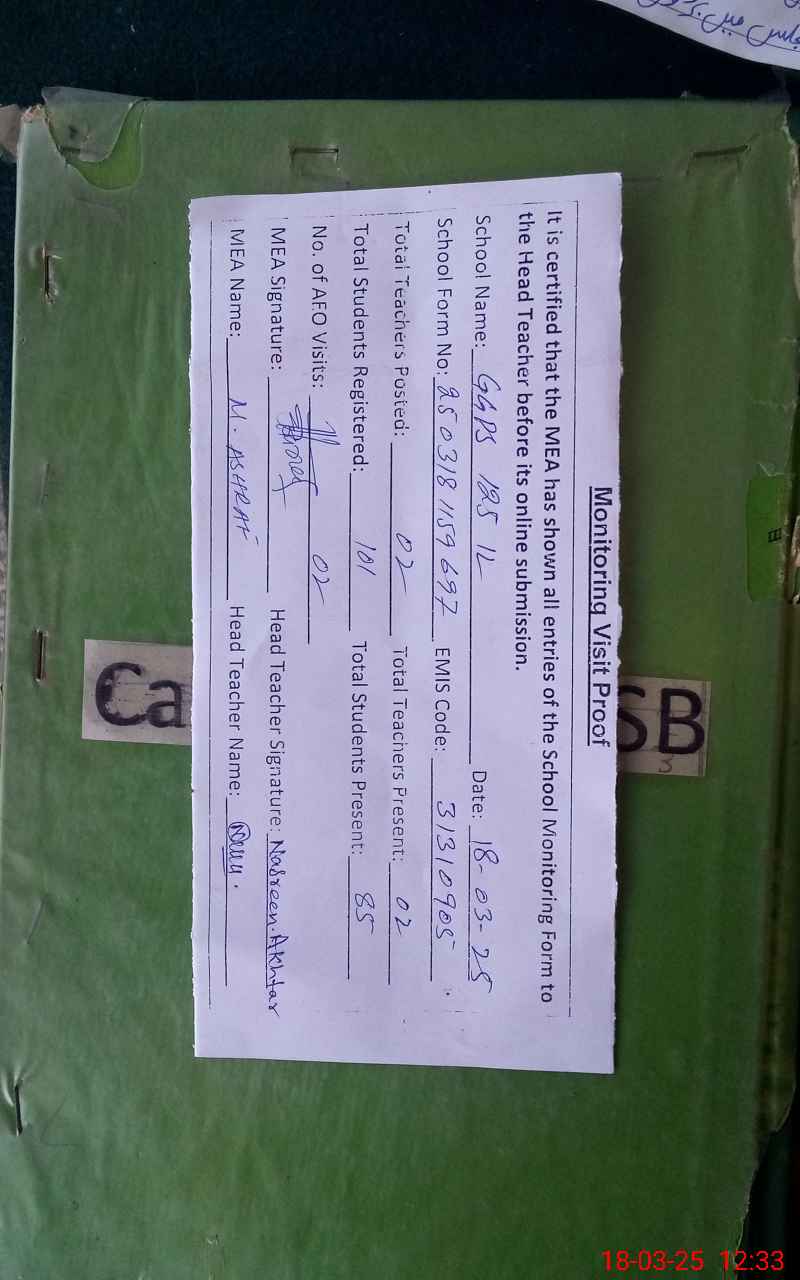 Monitoring Visit Proof
It is certified that the MEA has shown all entries of the School Monitoring Form to
the Head Teacher before its online submission.
School Name: GGPS 125 1L Date: 18-03-25
School Form No: 250318 1159 697 EMIS Code: 31310905
Total Teachers Posted: 02 Total Teachers Present: 02
Total Students Registered: 101 Total Students Present: 85
No. of AEO Visits: 02
MEA Signature: Head Teacher Signature: Nasreen.Akhtar
MEA Name: M. ASHRAF Head Teacher Name:
Ca
SB
18-03-25 12:33